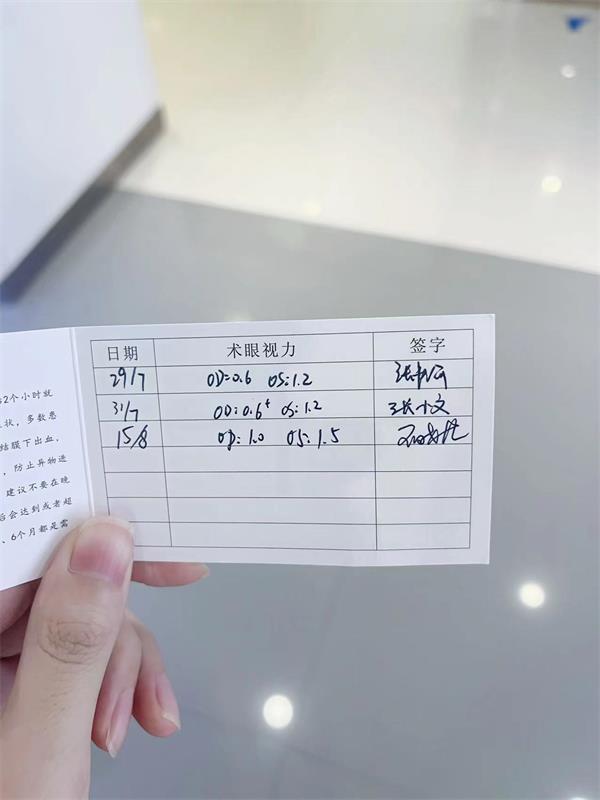 2个小时就
状，多数患
结膜下出血，
，防止异物进
建议不要在晚
后会达到或者超
、6个月都是需
日期 术眼视力 签字
29/7 OD:0.6 OS:1.2
31/7 OD:0.6⁺ OS:1.2
15/8 OD:1.0 OS:1.5